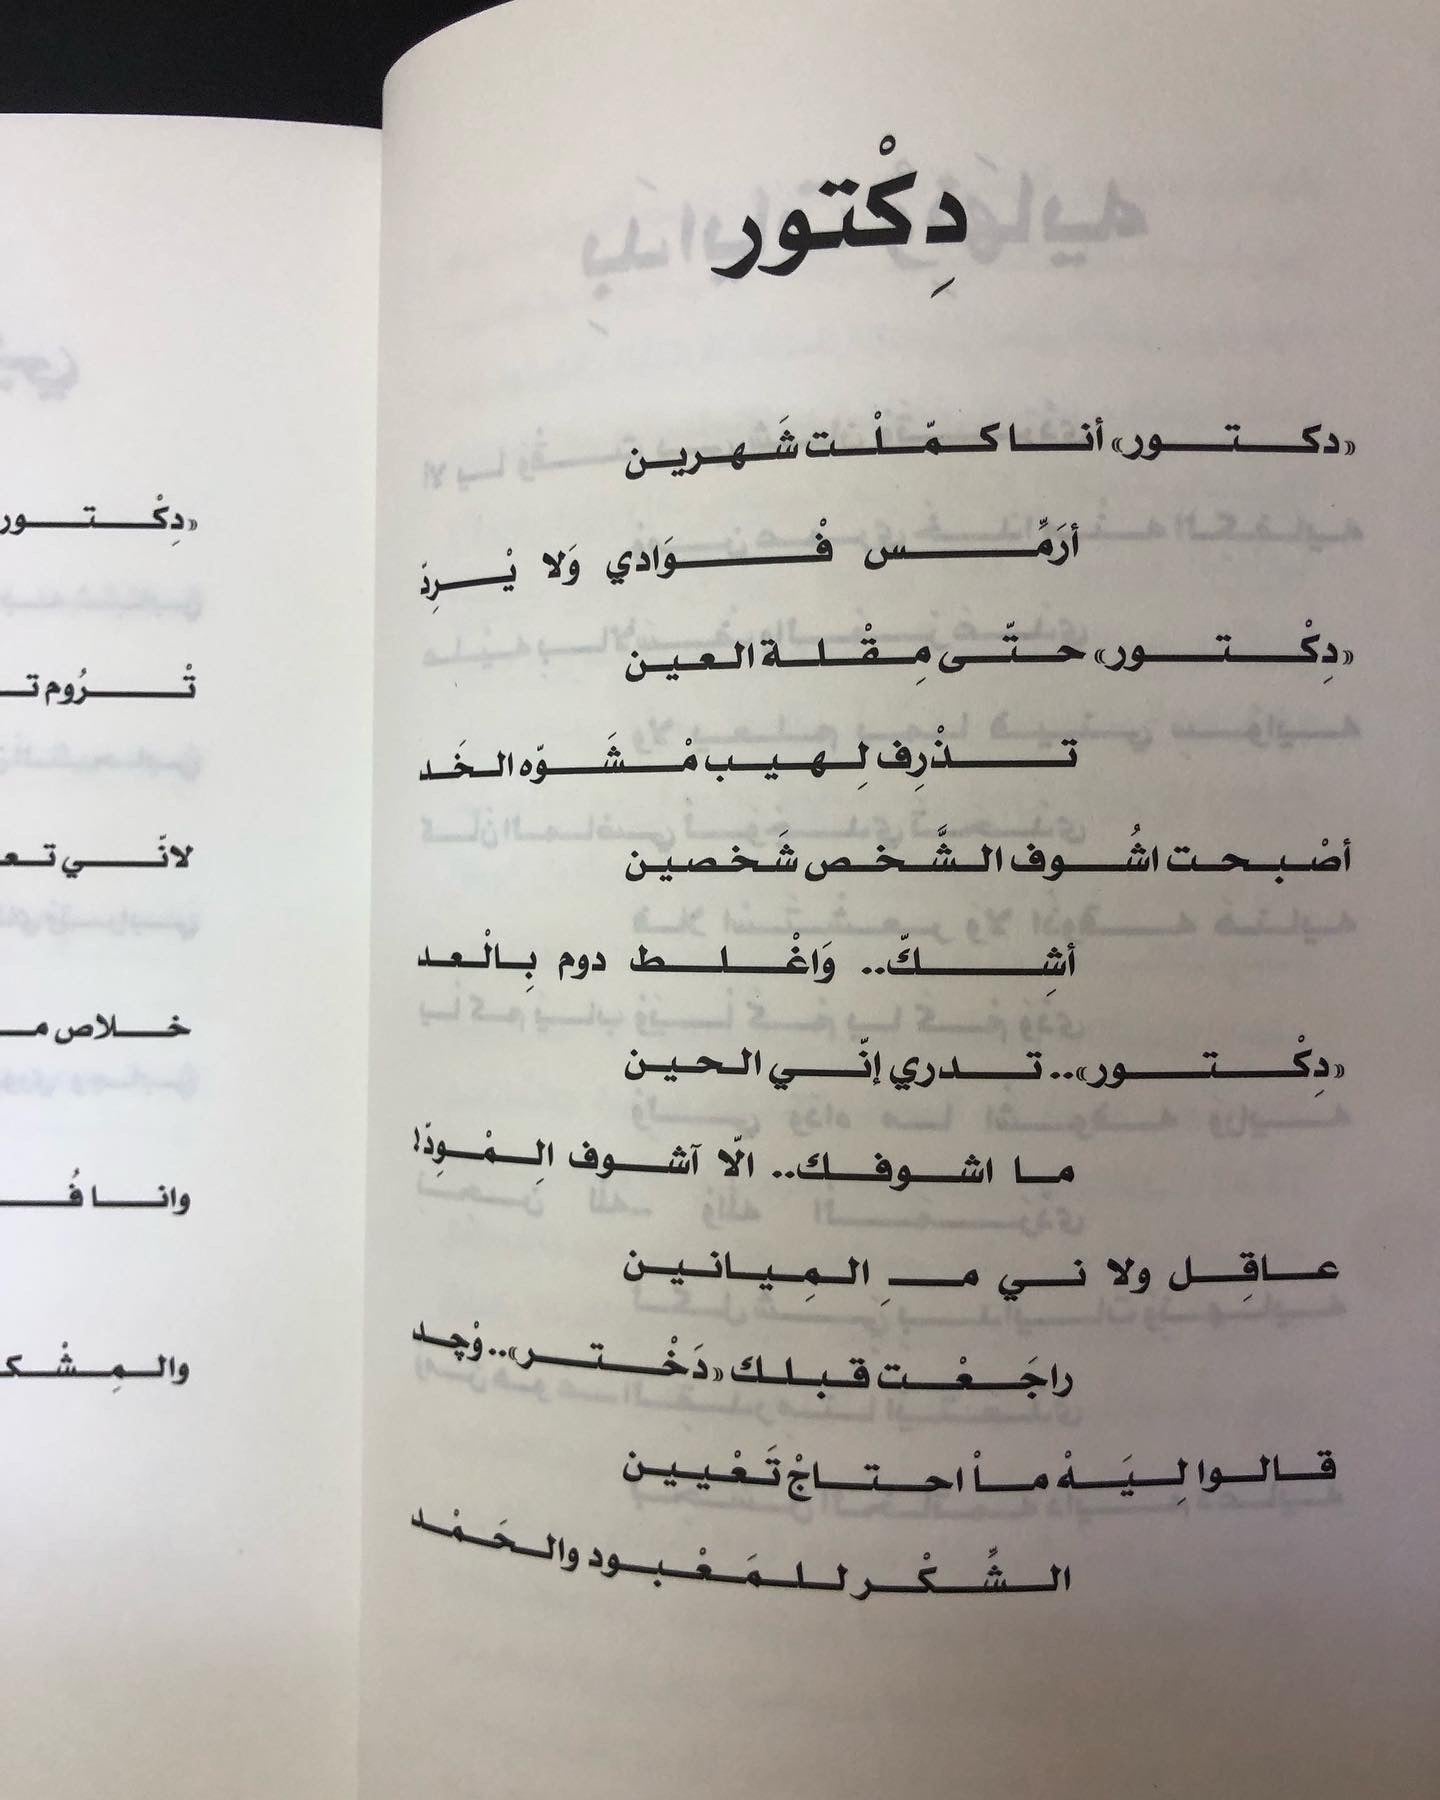 دِكْتور
«دكتور» أنا كمّلْت شَهرين
أرَمِّس فْوَادي وَلا يْرِدّ
«دِكْتور» حتّى مِقْلة العين
تذْرِف لِهيب مْشَوّه الخَد
أصْبحت اشُوف الشَّخص شَخصين
أشِكّ.. وَاغْلط دوم بِالْعد
«دِكْتور».. تدري إنّي الحين
ما اشوفك.. الّا آشوف اِلمْوِدّ!
عاقِل ولا ني مـِ المِيانين
راجَعْت قبلك «دَخْتر».. وْچد
قالوا لِيَهْ ماْ احتاجْ تَعْيين
الشِّكْر للمَعْبود والحَمْد
«دِكْتور
تْرُوم
لانّي
خلاص
وانا